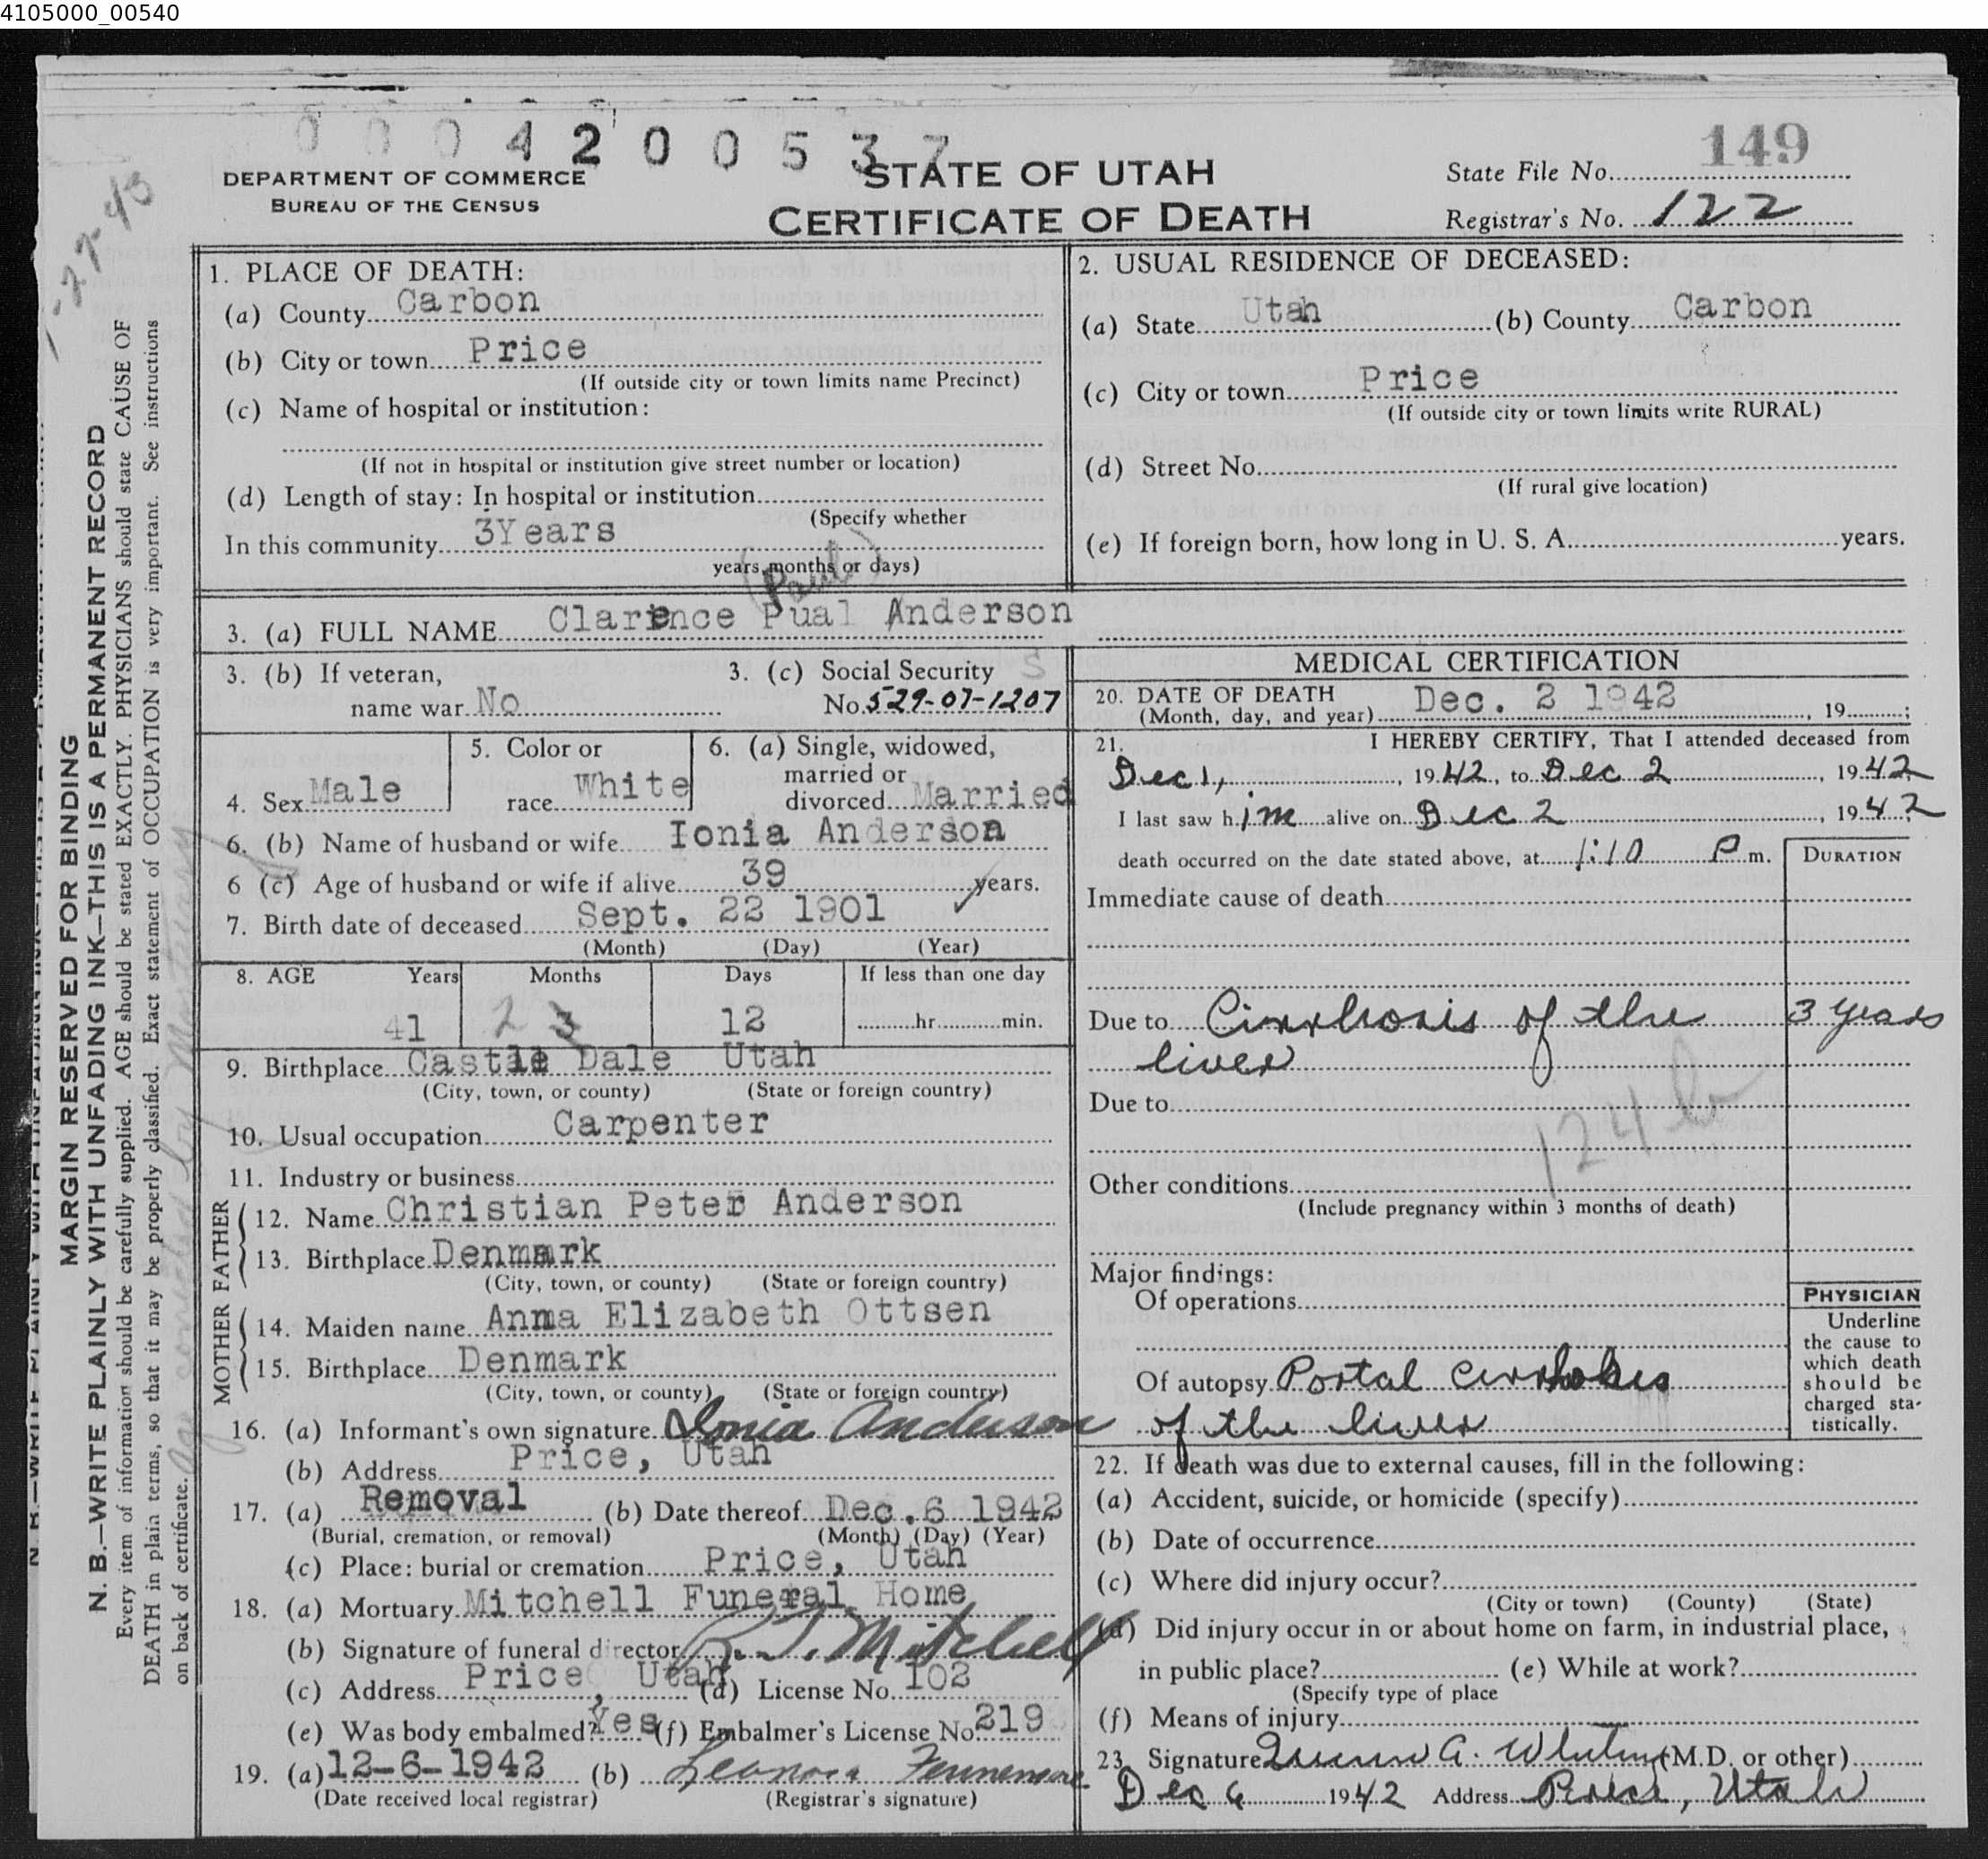 4105000_00540
0 0 0 4 2 0 0 5 3 7
149
DEPARTMENT OF COMMERCE
BUREAU OF THE CENSUS
STATE OF UTAH
CERTIFICATE OF DEATH
State File No.
Registrar's No. 122
MARGIN RESERVED FOR BINDING
N. B.—WRITE PLAINLY WITH UNFADING INK—THIS IS A PERMANENT RECORD
Every item of information should be carefully supplied. AGE should be stated EXACTLY. PHYSICIANS should state CAUSE OF
DEATH in plain terms, so that it may be properly classified. Exact statement of OCCUPATION is very important. See instructions
on back of certificate.
1. PLACE OF DEATH:
(a) County Carbon
(b) City or town Price
(If outside city or town limits name Precinct)
(c) Name of hospital or institution:
(If not in hospital or institution give street number or location)
(d) Length of stay: In hospital or institution
(Specify whether
In this community 3Years
years, months or days)
2. USUAL RESIDENCE OF DECEASED:
(a) State Utah (b) County Carbon
(c) City or town Price
(If outside city or town limits write RURAL)
(d) Street No.
(If rural give location)
(e) If foreign born, how long in U. S. A. years.
(Paul)
3. (a) FULL NAME Clarence Pual Anderson
3. (b) If veteran,
name war No
3. (c) Social Security
No. 529-07-1207
4. Sex Male
5. Color or
race White
6. (a) Single, widowed,
married or
divorced Married
6. (b) Name of husband or wife Ionia Anderson
6 (c) Age of husband or wife if alive 39 years.
7. Birth date of deceased Sept. 22 1901
(Month) (Day) (Year)
8. AGE Years Months Days If less than one day
41 2 3 12 hr. min.
9. Birthplace Castle Dale Utah
(City, town, or county) (State or foreign country)
10. Usual occupation Carpenter
11. Industry or business
FATHER
12. Name Christian Peter Anderson
13. Birthplace Denmark
(City, town, or county) (State or foreign country)
MOTHER
14. Maiden name Anna Elizabeth Ottsen
15. Birthplace Denmark
(City, town, or county) (State or foreign country)
16. (a) Informant's own signature Ionia Anderson
(b) Address Price, Utah
17. (a) Removal (b) Date thereof Dec. 6 1942
(Burial, cremation, or removal) (Month) (Day) (Year)
(c) Place: burial or cremation Price, Utah
18. (a) Mortuary Mitchell Funeral Home
(b) Signature of funeral director R. J. Mitchell
(c) Address Price, Utah (d) License No. 102
(e) Was body embalmed? Yes (f) Embalmer's License No. 219
19. (a) 12-6-1942 (b) Leonora Fennemore
(Date received local registrar) (Registrar's signature)
MEDICAL CERTIFICATION
20. DATE OF DEATH
(Month, day, and year) Dec. 2 1942, 19 ;
21. I HEREBY CERTIFY, That I attended deceased from
Dec 1, , 1942, to Dec 2, 1942
I last saw him alive on Dec 2, 1942
death occurred on the date stated above, at 1:10 P m.
DURATION
Immediate cause of death
Due to Cirrhosis of the 3 years
liver
Due to
124b
Other conditions
(Include pregnancy within 3 months of death)
Major findings:
Of operations
Of autopsy Portal Cirrhosis
of the liver
PHYSICIAN
Underline
the cause to
which death
should be
charged sta-
tistically.
22. If death was due to external causes, fill in the following:
(a) Accident, suicide, or homicide (specify)
(b) Date of occurrence
(c) Where did injury occur?
(City or town) (County) (State)
(d) Did injury occur in or about home on farm, in industrial place,
in public place? (e) While at work?
(Specify type of place
(f) Means of injury
23. Signature A. Whiting (M.D. or other)
Dec 6 1942 Address Price, Utah